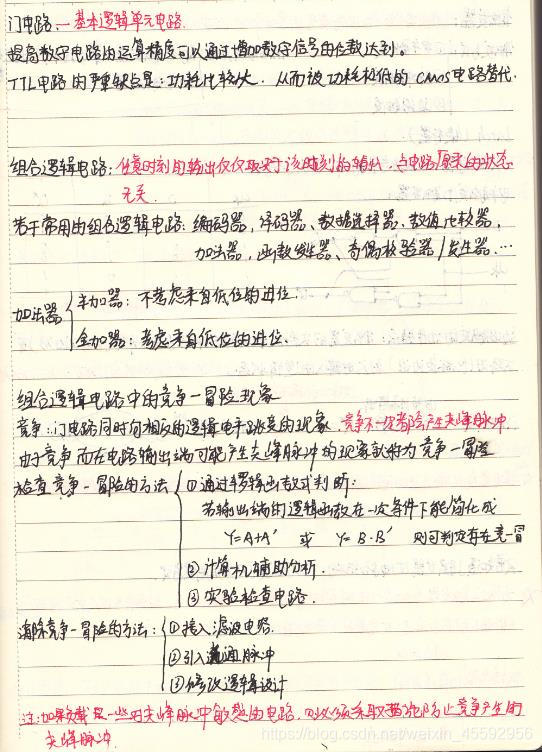 门电路 — 基本逻辑单元电路.
提高数字电路的运算精度可以通过增加数字信号的位数达到.
TTL电路的严重缺点是:功耗比较大. 从而被功耗极低的CMOS电路替代.
组合逻辑电路:任意时刻的输出仅仅取决于该时刻的输入,与电路原来的状态
无关.
若干常用的组合逻辑电路:编码器,译码器、数据选择器,数值比较器,
加法器,函数发生器、奇偶校验器/发生器...
加法器
半加器:不考虑来自低位的进位.
全加器:考虑来自低位的进位.
组合逻辑电路中的竞争—冒险现象
竞争:门电路同时向相反的逻辑电平跳变的现象. 竞争不一定都会产生尖峰脉冲
由于竞争而在电路输出端可能产生尖峰脉冲的现象就称为竞争—冒险
检查竞争—冒险的方法
①通过逻辑函数式判断:
若输出端的逻辑函数在一定条件下能简化成
Y=A+A' 或 Y=B·B' 则可判定存在竞—冒
②计算机辅助分析.
③实验检查电路.
消除竞争—冒险的方法:
①接入滤波电路.
②引入选通脉冲
③修改逻辑设计
注:如果负载是一些对尖峰脉冲敏感的电路,就必须采取措施防止竞争产生的
尖峰脉冲.
https://blog.csdn.net/weixin_45592956